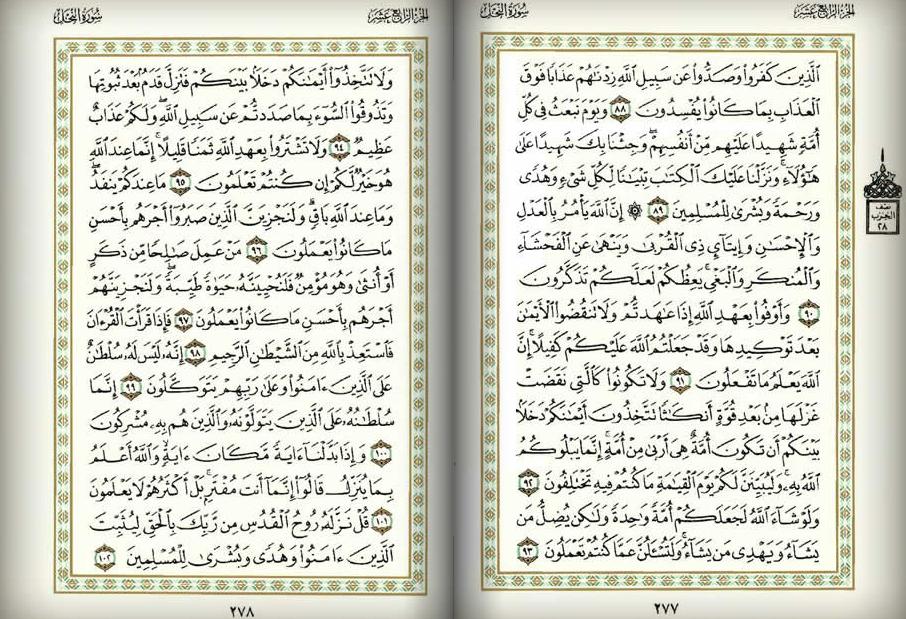 الجزء الرابع عشر
سورة النحل
الَّذِينَ كَفَرُوا۟ وَصَدُّوا۟ عَن سَبِيلِ اللَّهِ زِدْنَٰهُمْ عَذَابًا فَوْقَ
الْعَذَابِ بِمَا كَانُوا۟ يُفْسِدُونَ ٨٨ وَيَوْمَ نَبْعَثُ فِى كُلِّ
أُمَّةٍ شَهِيدًا عَلَيْهِم مِّنْ أَنفُسِهِمْ ۖ وَجِئْنَا بِكَ شَهِيدًا عَلَىٰ
هَٰٓؤُلَآءِ ۚ وَنَزَّلْنَا عَلَيْكَ الْكِتَٰبَ تِبْيَٰنًا لِّكُلِّ شَىْءٍ وَهُدًى
وَرَحْمَةً وَبُشْرَىٰ لِلْمُسْلِمِينَ ٨٩ ۞ إِنَّ اللَّهَ يَأْمُرُ بِالْعَدْلِ
وَالْإِحْسَٰنِ وَإِيتَآئِ ذِى الْقُرْبَىٰ وَيَنْهَىٰ عَنِ الْفَحْشَآءِ
وَالْمُنكَرِ وَالْبَغْىِ ۚ يَعِظُكُمْ لَعَلَّكُمْ تَذَكَّرُونَ
٩٠ وَأَوْفُوا۟ بِعَهْدِ اللَّهِ إِذَا عَٰهَدتُّمْ وَلَا تَنقُضُوا۟ الْأَيْمَٰنَ
بَعْدَ تَوْكِيدِهَا وَقَدْ جَعَلْتُمُ اللَّهَ عَلَيْكُمْ كَفِيلًا ۚ إِنَّ
اللَّهَ يَعْلَمُ مَا تَفْعَلُونَ ٩١ وَلَا تَكُونُوا۟ كَالَّتِى نَقَضَتْ
غَزْلَهَا مِنۢ بَعْدِ قُوَّةٍ أَنكَٰثًا تَتَّخِذُونَ أَيْمَٰنَكُمْ دَخَلًۢا
بَيْنَكُمْ أَن تَكُونَ أُمَّةٌ هِىَ أَرْبَىٰ مِنْ أُمَّةٍ ۚ إِنَّمَا يَبْلُوكُمُ
اللَّهُ بِهِۦ ۚ وَلَيُبَيِّنَنَّ لَكُمْ يَوْمَ الْقِيَٰمَةِ مَا كُنتُمْ فِيهِ تَخْتَلِفُونَ ٩٢
وَلَوْ شَآءَ اللَّهُ لَجَعَلَكُمْ أُمَّةً وَٰحِدَةً وَلَٰكِن يُضِلُّ مَن
يَشَآءُ وَيَهْدِى مَن يَشَآءُ ۚ وَلَتُسْـَٔلُنَّ عَمَّا كُنتُمْ تَعْمَلُونَ ٩٣
نصف
الحزب
٢٨
٢٧٧
الجزء الرابع عشر
سورة النحل
وَلَا تَتَّخِذُوٓا۟ أَيْمَٰنَكُمْ دَخَلًۢا بَيْنَكُمْ فَتَزِلَّ قَدَمٌۢ بَعْدَ ثُبُوتِهَا
وَتَذُوقُوا۟ السُّوٓءَ بِمَا صَدَدتُّمْ عَن سَبِيلِ اللَّهِ ۖ وَلَكُمْ عَذَابٌ
عَظِيمٌ ٩٤ وَلَا تَشْتَرُوا۟ بِعَهْدِ اللَّهِ ثَمَنًا قَلِيلًا ۚ إِنَّمَا عِندَ اللَّهِ
هُوَ خَيْرٌ لَّكُمْ إِن كُنتُمْ تَعْلَمُونَ ٩٥ مَا عِندَكُمْ يَنفَدُ ۖ
وَمَا عِندَ اللَّهِ بَاقٍ ۗ وَلَنَجْزِيَنَّ الَّذِينَ صَبَرُوٓا۟ أَجْرَهُم بِأَحْسَنِ
مَا كَانُوا۟ يَعْمَلُونَ ٩٦ مَنْ عَمِلَ صَٰلِحًا مِّن ذَكَرٍ
أَوْ أُنثَىٰ وَهُوَ مُؤْمِنٌ فَلَنُحْيِيَنَّهُۥ حَيَوٰةً طَيِّبَةً ۖ وَلَنَجْزِيَنَّهُمْ
أَجْرَهُم بِأَحْسَنِ مَا كَانُوا۟ يَعْمَلُونَ ٩٧ فَإِذَا قَرَأْتَ الْقُرْءَانَ
فَاسْتَعِذْ بِاللَّهِ مِنَ الشَّيْطَٰنِ الرَّجِيمِ ٩٨ إِنَّهُۥ لَيْسَ لَهُۥ سُلْطَٰنٌ
عَلَى الَّذِينَ ءَامَنُوا۟ وَعَلَىٰ رَبِّهِمْ يَتَوَكَّلُونَ ٩٩ إِنَّمَا
سُلْطَٰنُهُۥ عَلَى الَّذِينَ يَتَوَلَّوْنَهُۥ وَالَّذِينَ هُم بِهِۦ مُشْرِكُونَ
١٠٠ وَإِذَا بَدَّلْنَآ ءَايَةً مَّكَانَ ءَايَةٍ ۙ وَاللَّهُ أَعْلَمُ
بِمَا يُنَزِّلُ قَالُوٓا۟ إِنَّمَآ أَنتَ مُفْتَرٍۭ ۚ بَلْ أَكْثَرُهُمْ لَا يَعْلَمُونَ
١٠١ قُلْ نَزَّلَهُۥ رُوحُ الْقُدُسِ مِن رَّبِّكَ بِالْحَقِّ لِيُثَبِّتَ
الَّذِينَ ءَامَنُوا۟ وَهُدًى وَبُشْرَىٰ لِلْمُسْلِمِينَ ١٠٢
٢٧٨